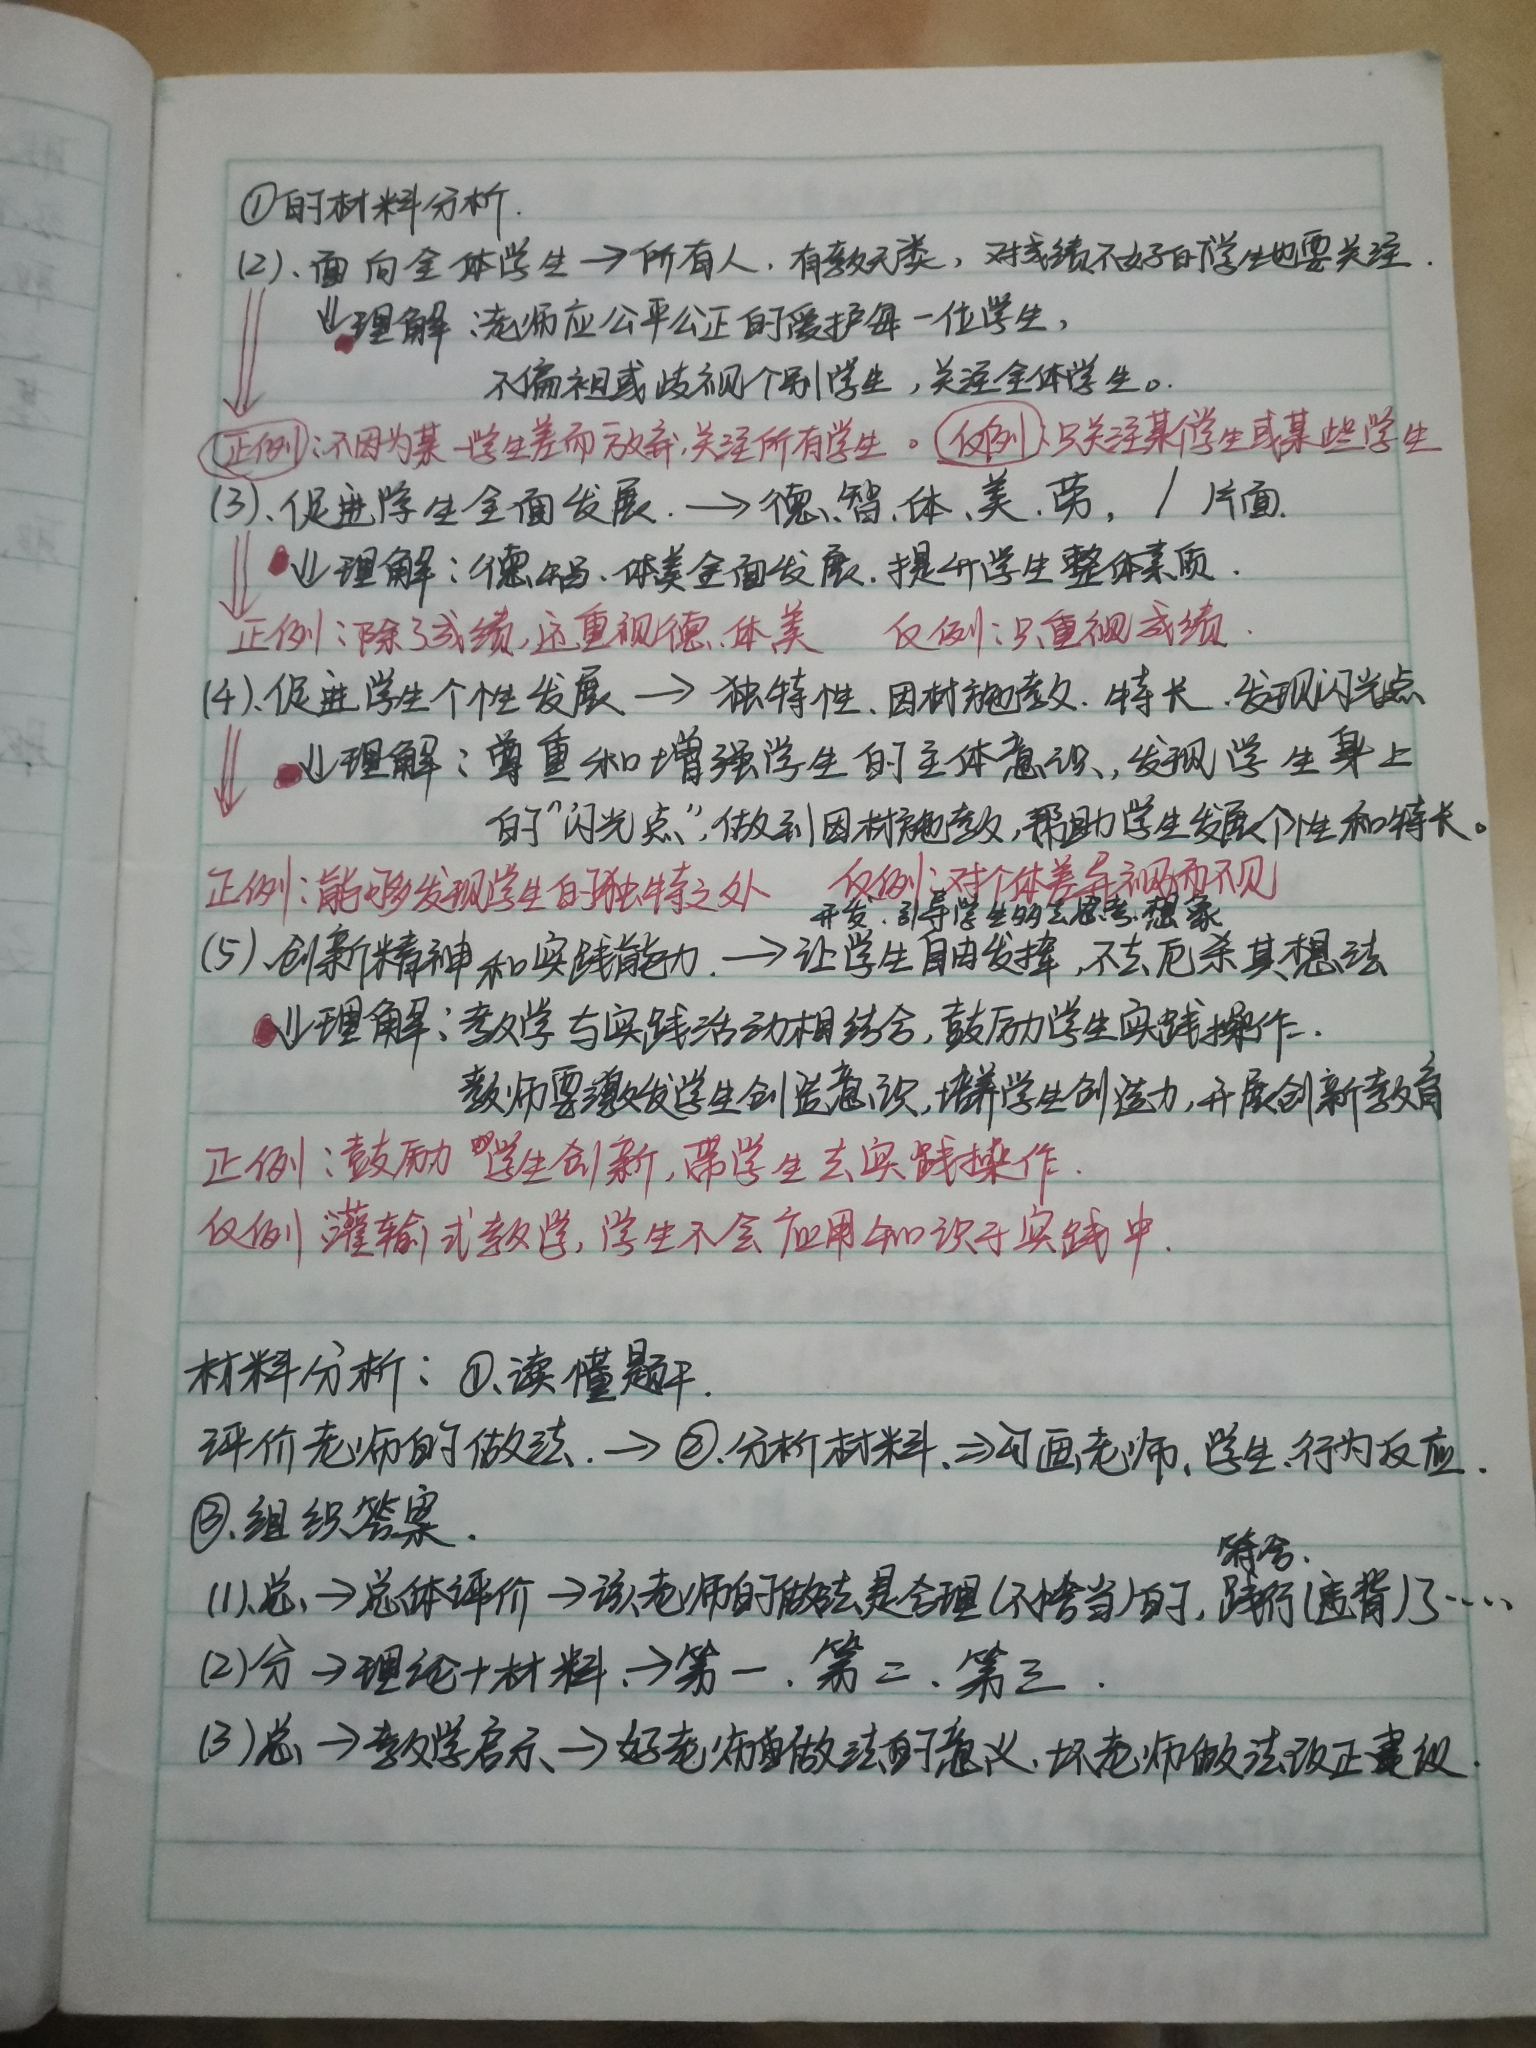 ①的材料分析.
(2)、面向全体学生→所有人.有教无类,对成绩不好的学生也要关注.
↓理解:老师应公平公正的爱护每一位学生,
不偏袒或歧视个别学生,关注全体学生。
正例:不因为某一学生差而放弃,关注所有学生。仅例:只关注某个学生或某些学生
(3)、促进学生全面发展.→德、智、体、美、劳, / 片面.
↓理解:德、智、体美全面发展.提升学生整体素质.
正例:除了成绩,还重视德、体美 仅例:只重视成绩.
(4)、促进学生个性发展→独特性、因材施教.特长.发现闪光点
↓理解:尊重和增强学生的主体意识,发现学生身上
的“闪光点”,做到因材施教,帮助学生发展个性和特长。
正例:能够发现学生的独特之处 仅例:对个体差异视而不见
开发.引导学生的去思考.想象
(5)、创新精神和实践能力.→让学生自由发挥,不去厄杀其想法
↓理解:教学与实践活动相结合,鼓励学生实践操作.
教师要激发学生创造意识,培养学生创造力,开展创新教育
正例:鼓励学生创新,带学生去实践操作.
仅例:灌输式教学,学生不会应用知识于实践中.
材料分析:①、读懂题干.
评价老师的做法.→②.分析材料.⇒勾画老师、学生、行为反应.
③、组织答案.
符合.
(1)、总→总体评价→该老师的做法是合理(不恰当)的,践行(违背)了……
(2)分→理论+材料.→第一.第二.第三.
(3)总→教学启示→好老师做法的意义.坏老师做法改正建议.